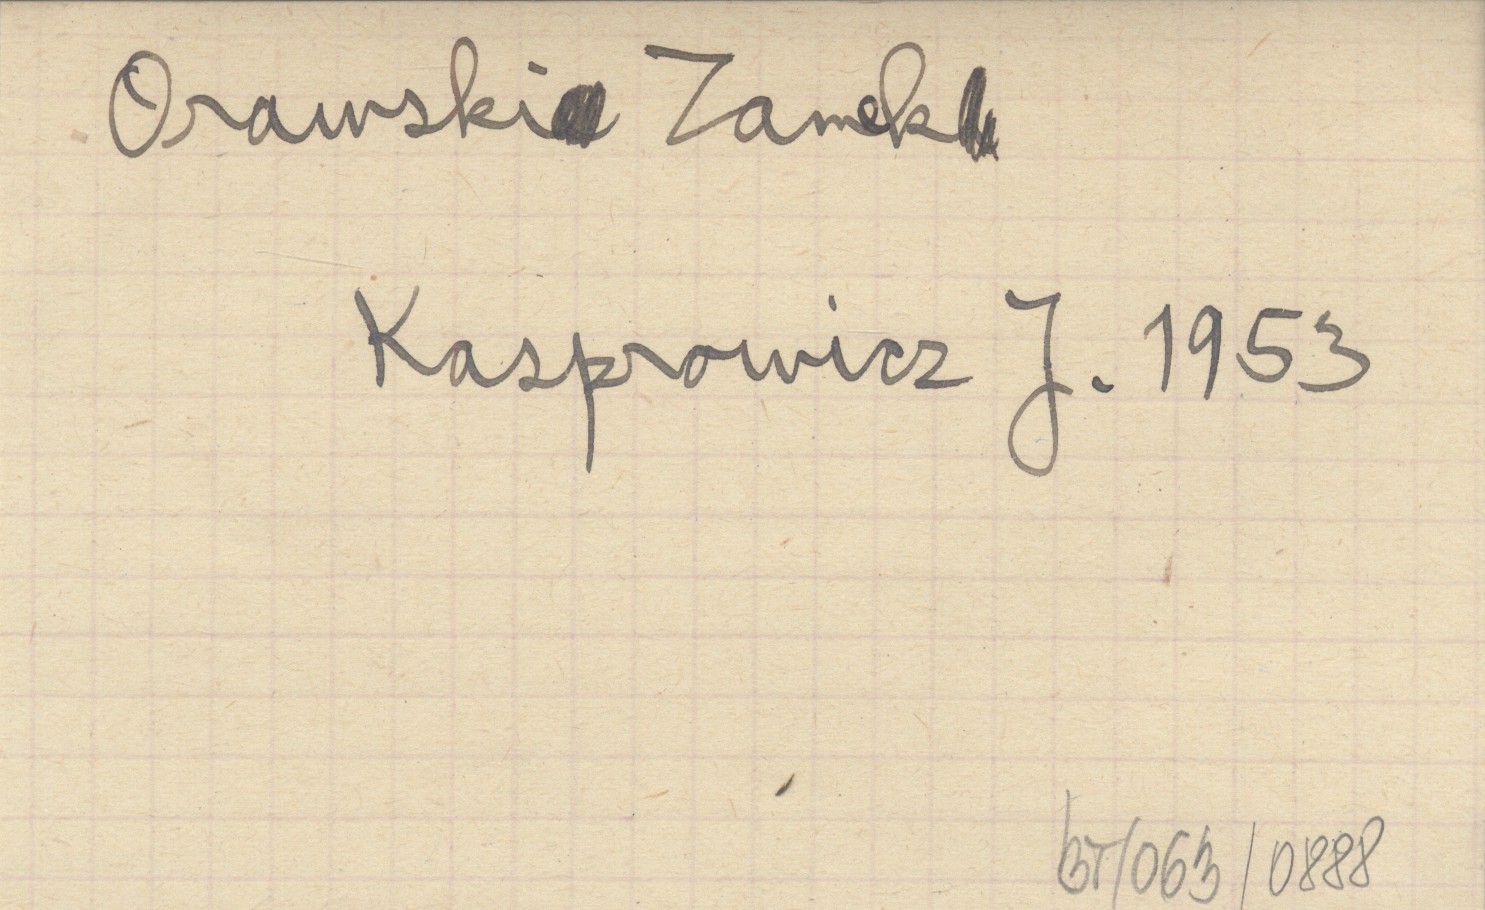 Orawski Zamek
Kasprowicz J. 1953
BT/063/0888